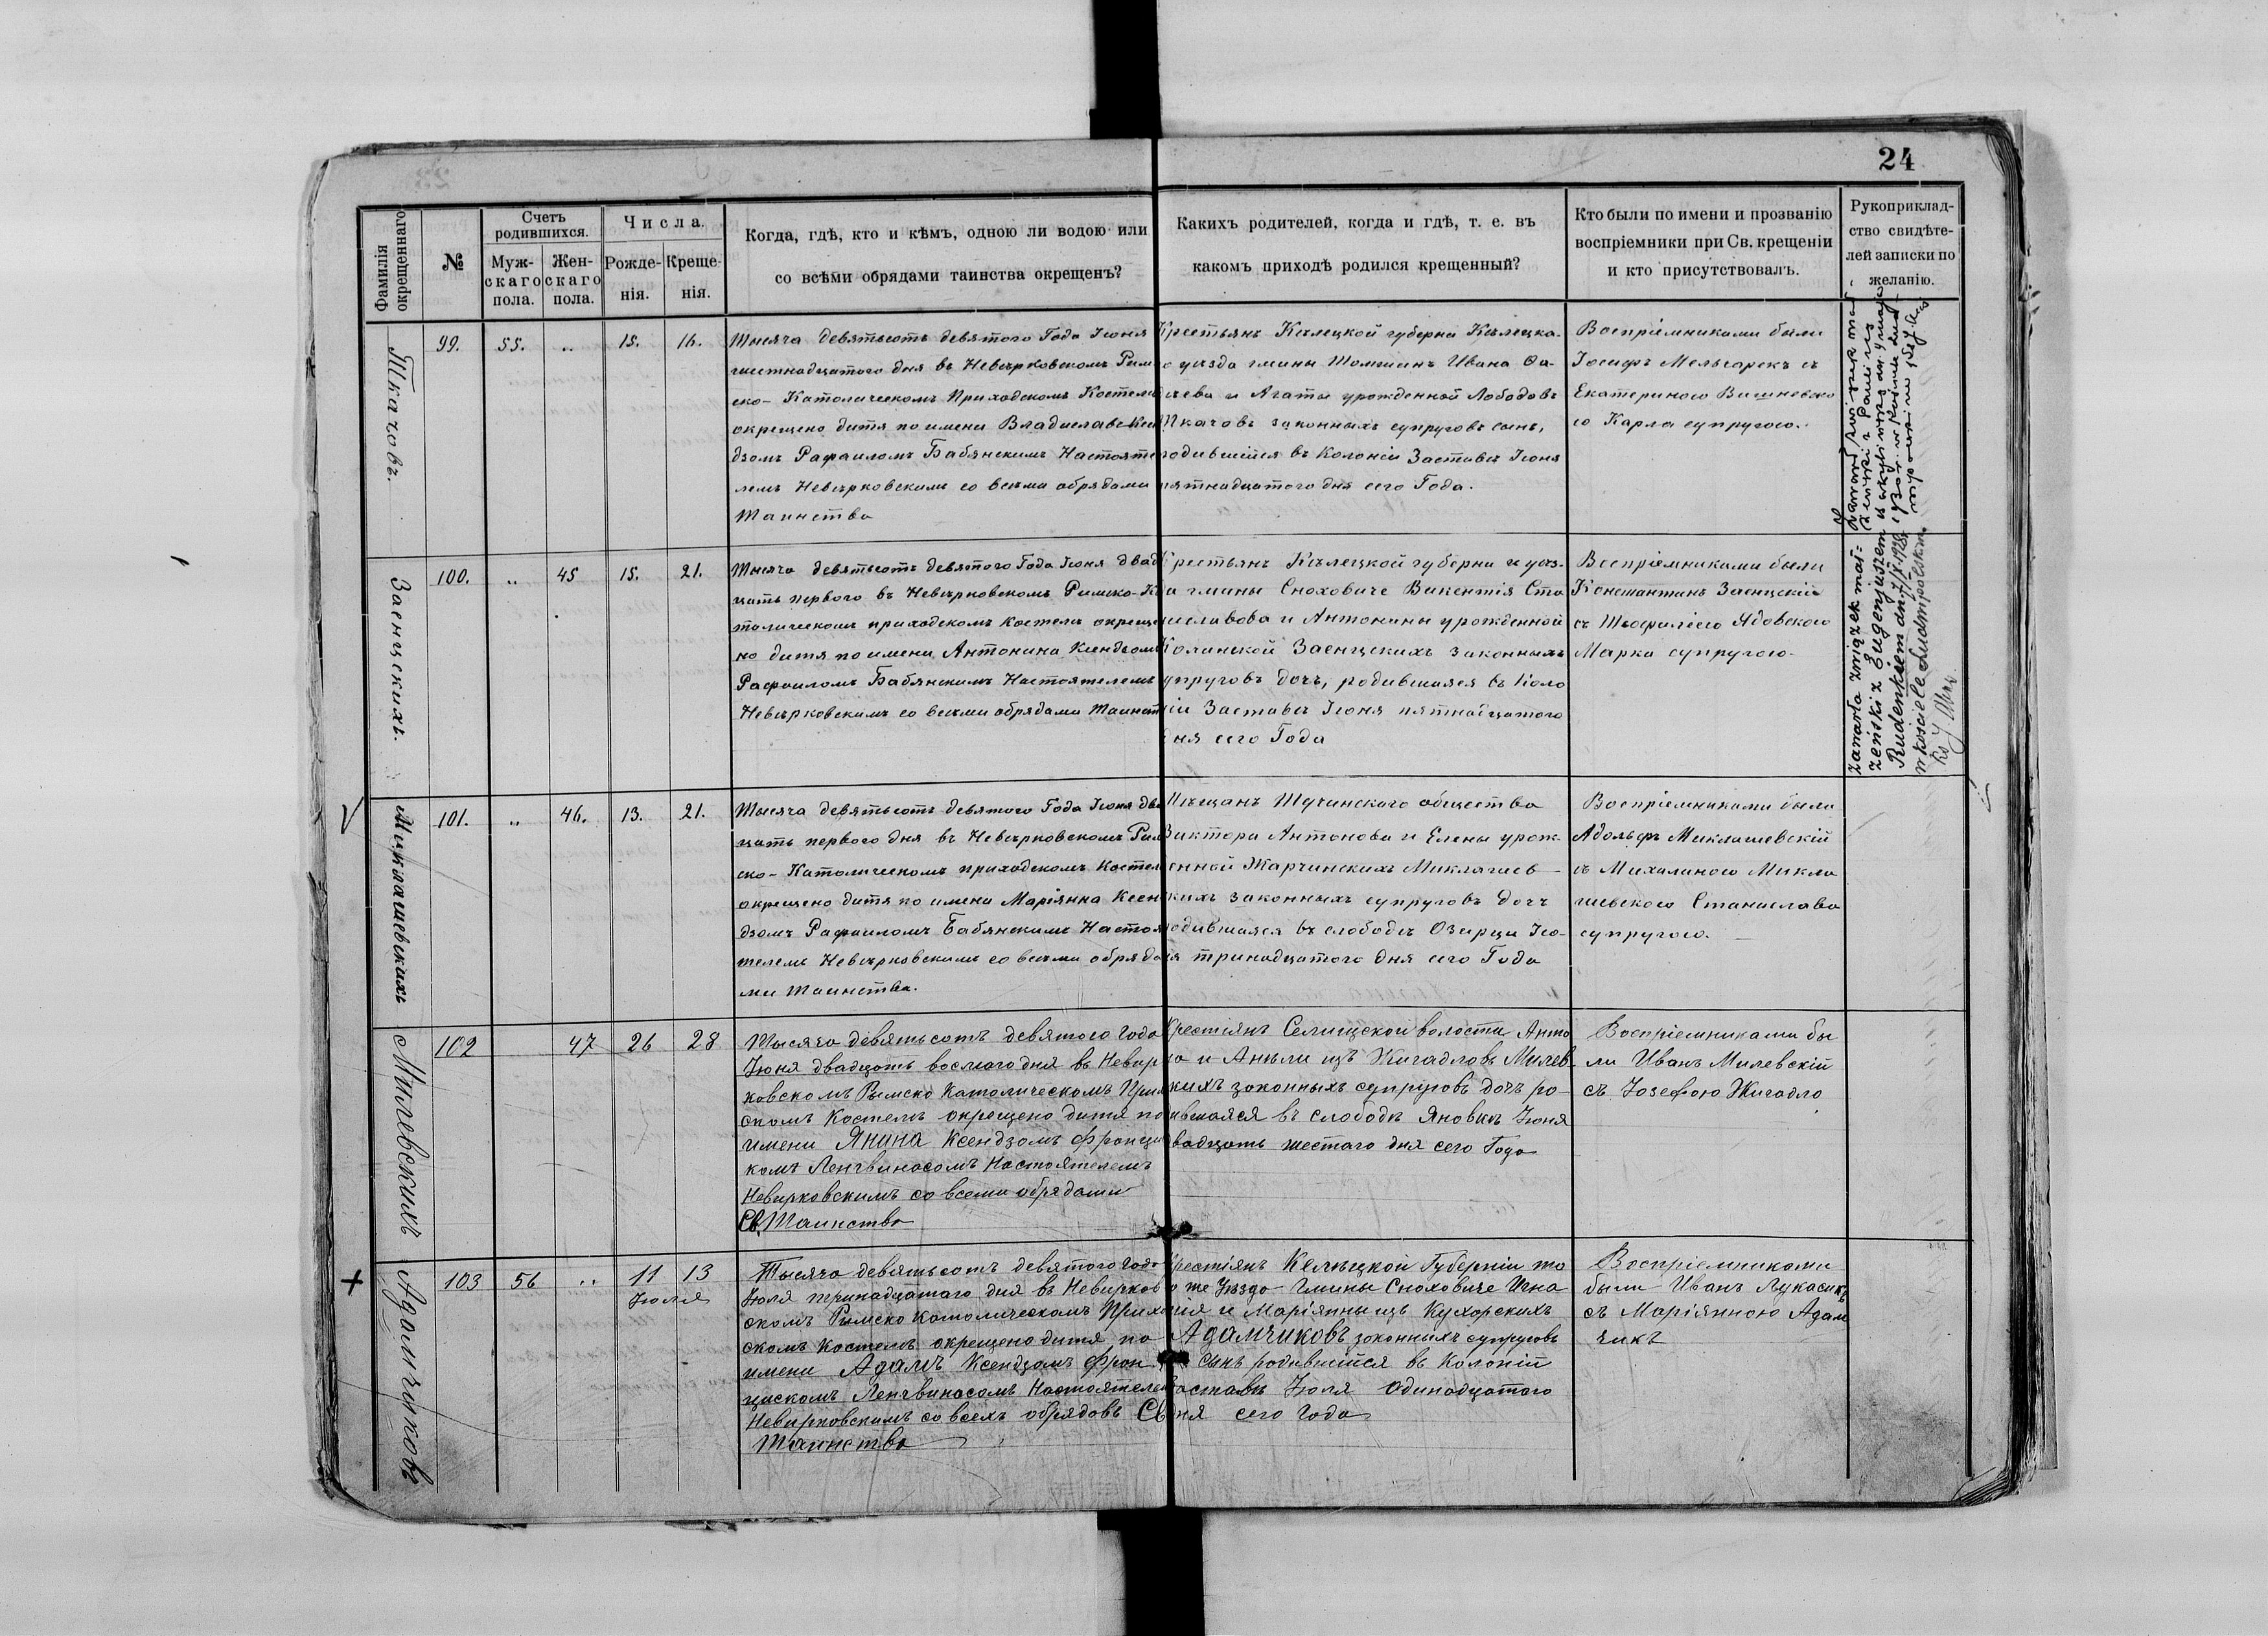 24
Фамилія окрещеннаго
№
Счетъ родившихся.
Мужскаго пола.
Женскаго пола.
Числа.
Рожденія.
Крещенія.
Когда, гдѣ, кто и кѣмъ, одною ли водою или
со всѣми обрядами таинства окрещенъ?
Какихъ родителей, когда и гдѣ, т. е. въ
какомъ приходѣ родился крещенный?
Кто были по имени и прозванію
воспріемники при Св. крещеніи
и кто присутствовалъ.
Рукоприклад-
ство свидѣте-
лей записки по
желанію.
Ткачовъ.
99. 55. .. 15. 16.
Тысяча девятьсотъ девятого Года Іюня
шестнадцатого дня въ Невѣрковскомъ Рим
ско-Католическомъ Приходскомъ Костелѣ
окрещено дитя по имени Владиславъ Ксен
дзомъ Рафаиломъ Бабянскимъ Настояте
лемъ Невѣрковскимъ со всѣми обрядами
Таинства
Крестьянъ Кѣлецкой губерни Кѣлецка-
го уѣзда гмины Ивана
и Агаты урожденной Лободовъ
Ткачовъ законныхъ супруговъ сынъ,
родившійся въ Колоніи Заставѣ Іюня
пятнадцатого дня сего Года.
Воспріемниками были
Іосифъ Мельгарекъ съ
Екатериною Вишневско
ю Карла супругою.
Заенцскихъ.
100. .. 45 15. 21.
Тысяча девятьсотъ девятого Года Іюня двад
цать первого въ Невѣрковскомъ Римско-Ка
толическомъ приходскомъ Костелѣ окреще
но дитя по имени Антонина Ксендзомъ
Рафаиломъ Бабянскимъ Настоятелемъ
Невѣрковскимъ со всѣми обрядами Таинст
Крестьянъ Кѣлецкой губерни и уѣз-
да гмины Сноховиче Викентія Ста
ниславова и Антонины урожденной
Колинской Заенцскихъ законныхъ
супруговъ дочъ, родившаяся въ Коло
ніи Заставѣ Іюня пятнадцатого
дня сего Года
Воспріемниками были
Константинъ Заенцскій
съ Теофиліею Ядовскою
Марка супругою.
zawarła związek mał=
żeński z Eugenjuszem
Rudenkiem dn.
w kościele Ludwipolskim.
Миклашевскихъ
101. .. 46. 13. 21.
Тысяча девятьсотъ девятого Года Іюня два
цать первого дня въ Невѣрковскомъ Рим
ско-Католическомъ приходскомъ Костелѣ
окрещено дитя по имени Маріянна Ксен
дзомъ Рафаиломъ Бабянскимъ Настоя
телемъ Невѣрковскимъ со всѣми обряда
ми Таинства.
Мѣщанъ Тучинского общества
Виктора Антонова и Елены урож-
денной Жарчинскихъ Миклашев-
скихъ законныхъ супруговъ дочъ
родившаяся въ слободѣ Озирци Ію-
ня тринадцатого дня сего Года
Воспріемниками были
Адольфъ Миклашевскій
съ Михалиною Микла
шевскою Станислава
супругою.
Милевскихъ
102 47 26 28
Тысяча девятьсотъ девятого года
Іюня двадцать восмаго дня въ Невир
ковскомъ Рымско Католическомъ Прихо
скомъ Костелѣ окрещено дитя по
имени Янина Ксендзомъ Францыш
комъ Ленгвинасомъ Настоятелемъ
Невирковскимъ со всеми обрядами
Св. Таинства
Крестіянъ Селищской волости Анто
на и Анѣли изъ Жигадловъ Милев
скихъ законныхъ супруговъ дочъ ро-
дившаяся въ слободѣ Яновкѣ Іюня
двадцать шестаго дня сего Года
Воспріемниками бы
ли Иванъ Милевскій
съ Іозефою Жигадло
Адамчиковъ
103 56 .. 11 13
Іюля
Тысяча девятьсотъ девятого года
Іюля тринадцатаго дня въ Невирков
скомъ Рымско Католическомъ Прихо
скомъ Костелѣ окрещено дитя по
имени Адамъ Ксендзомъ Фран
цискомъ Ленгвинасомъ Настоятелем
Невирковскимъ со всехъ обрядовъ Св
Таинства
Крестіянъ Келѣцкой Губерніи то
го же Уѣзда Гмины Сноховиче Игна
ція и Маріянны изъ Кухарскихъ
Адамчиковъ законныхъ супруговъ
сынъ родившійся въ Колоній
Заставѣ Іюля одинадцатого
дня сего Года
Воспріемниками
были Иванъ Лукасикъ
съ Маріянною Адам
чикъ